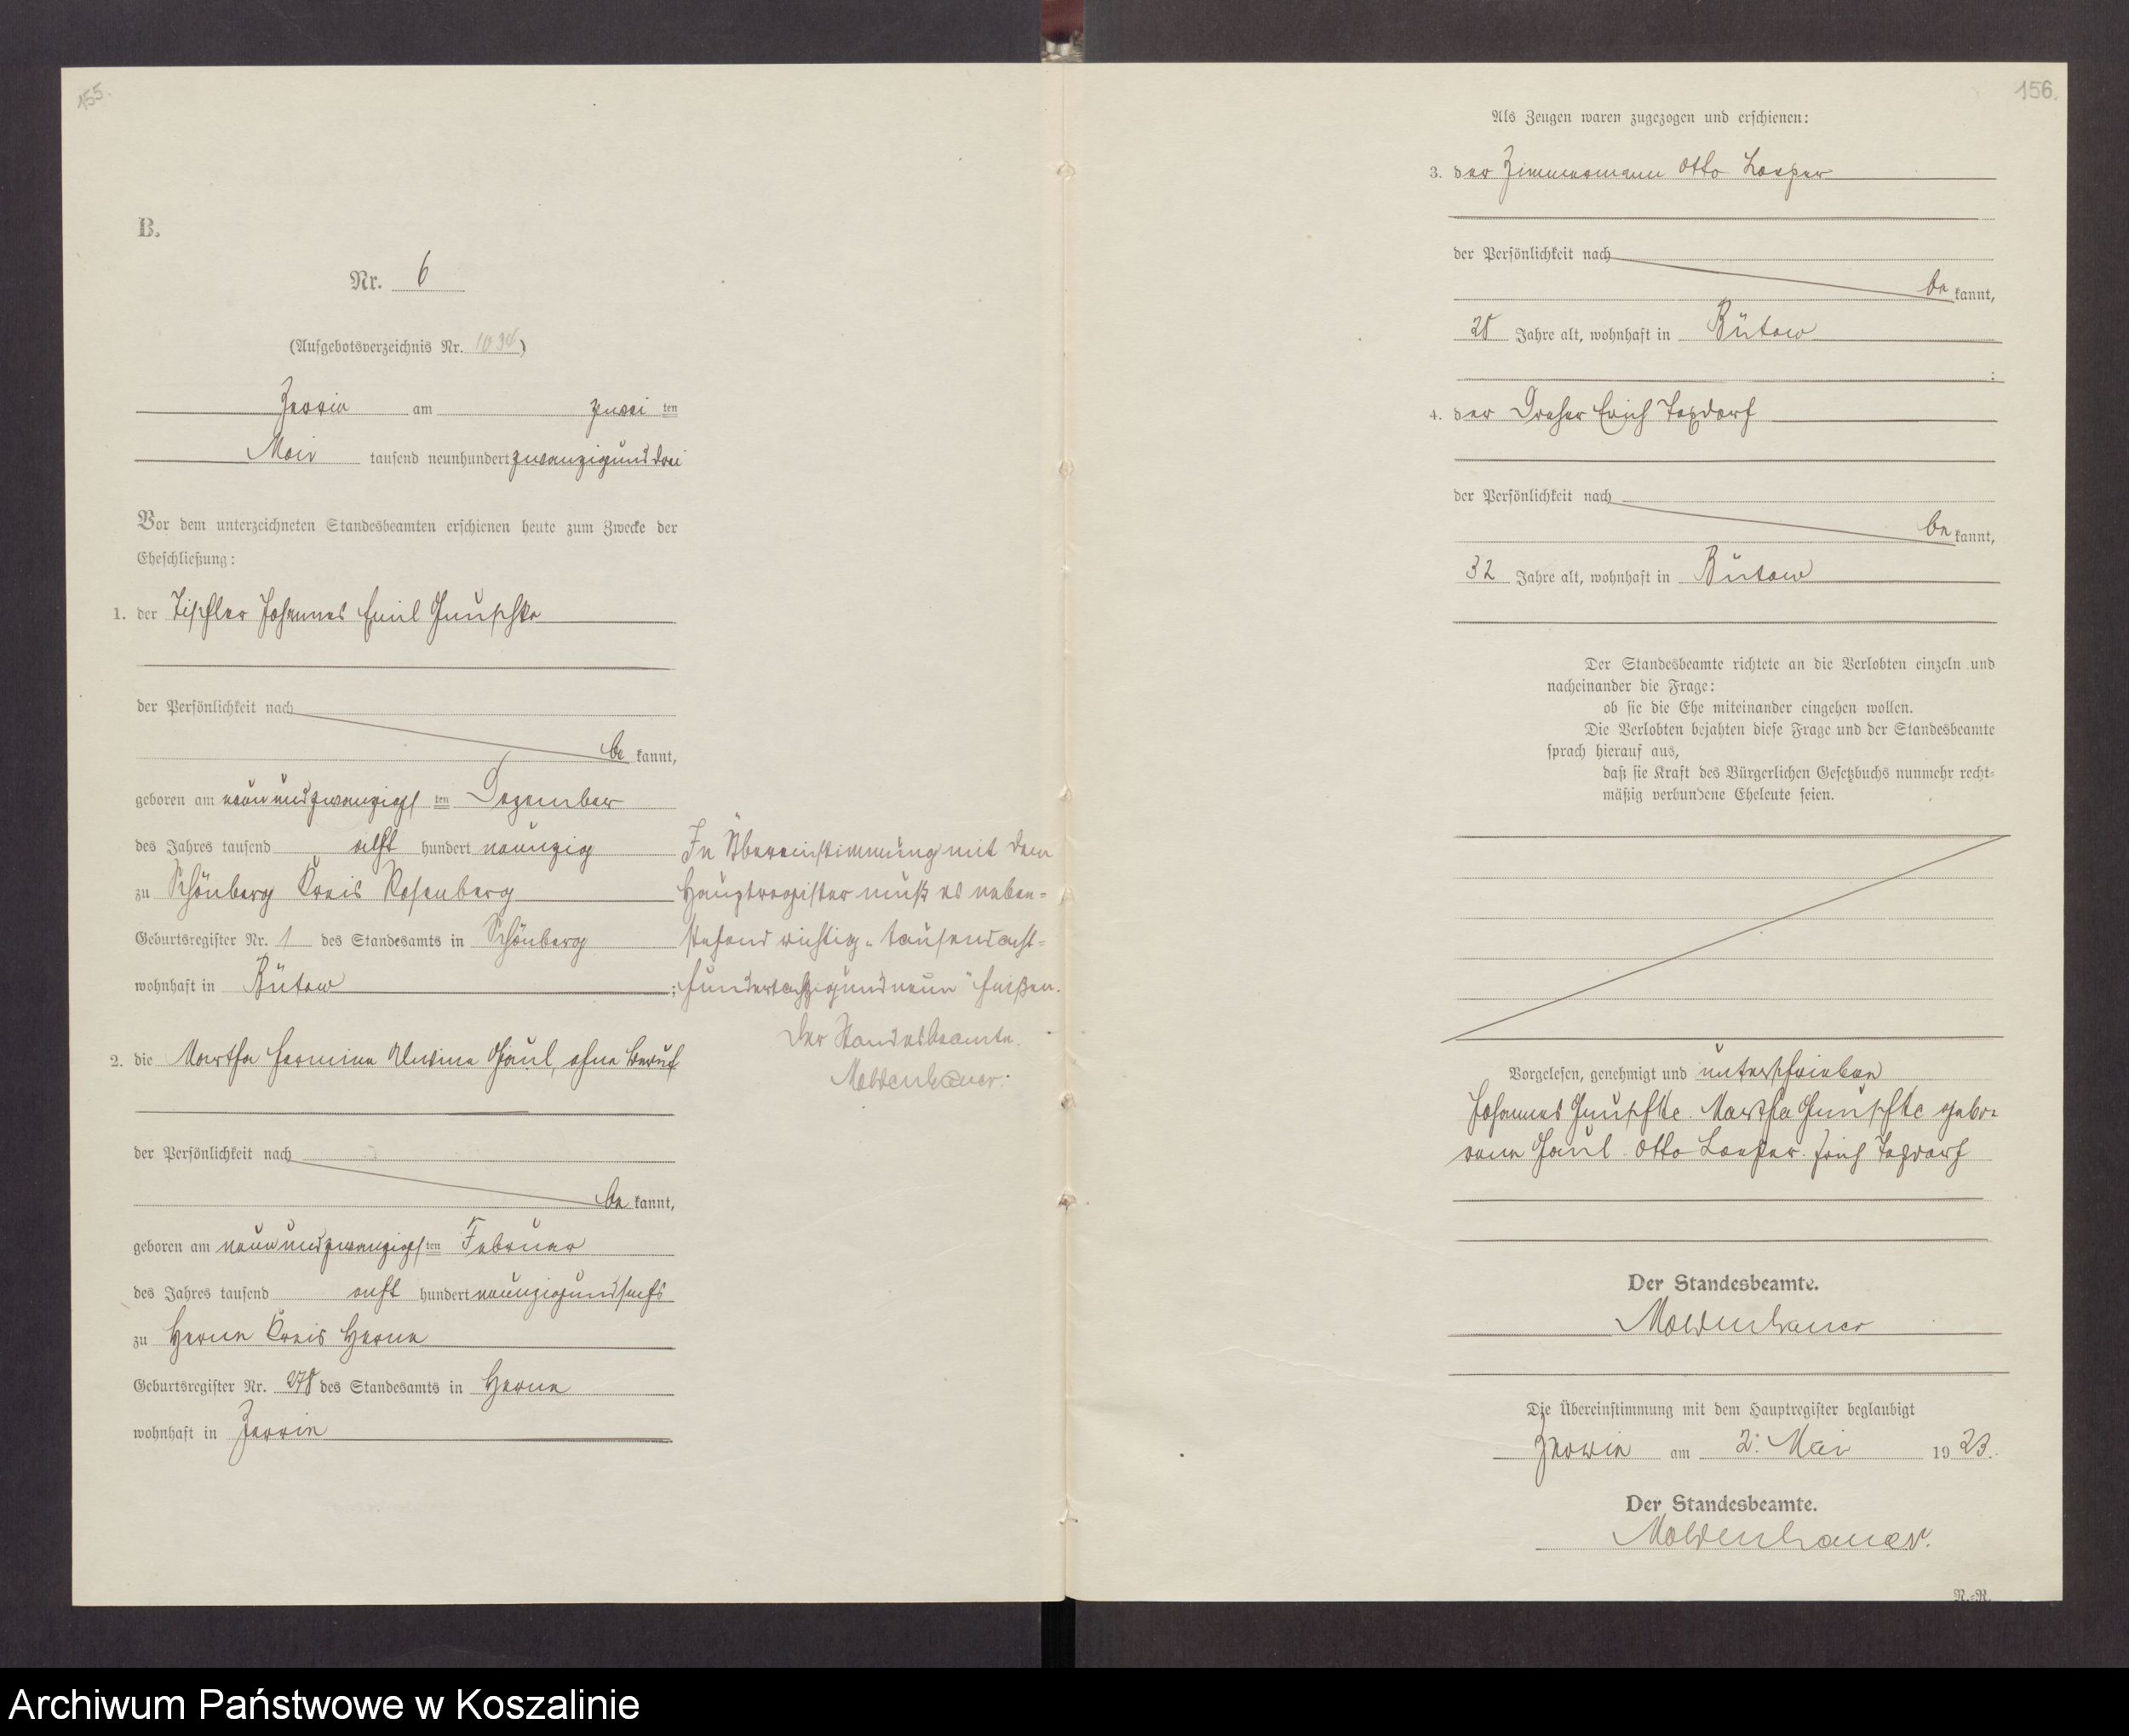 155.
B.
Nr. 6
(Aufgebotsverzeichnis Nr. )
Zerrin am zwei ten
Mai tausend neunhundert zwanzigunddrei
Vor dem unterzeichneten Standesbeamten erschienen heute zum Zwecke der
Eheschließung:
1. der Tischler Johannes Emil Gnuschke
der Persönlichkeit nach
be kannt,
geboren am neunundzwanzigs ten Dezember
des Jahres tausend acht hundert neunzig
zu Schönberg Kreis Rosenberg
Geburtsregister Nr. 1 des Standesamts in Schönberg
wohnhaft in Bütow ;
2. die Martha Hermine Gaul, ohne Beruf
der Persönlichkeit nach
be kannt,
geboren am neunundzwanzigs ten Februar
des Jahres tausend acht hundert neunzigundsechs
zu Herne Kreis Herne
Geburtsregister Nr. 278 des Standesamts in Herne
wohnhaft in Zerrin
In Übereinstimmung mit dem
Hauptregister muß es neben=
stehend richtig „tausendacht=
hundertachtzigundneun" heißen.
Der Standesbeamte.
Moldenhauer.
156.
Als Zeugen waren zugezogen und erschienen:
3. der Zimmermann Otto Loeper
der Persönlichkeit nach
be kannt,
28 Jahre alt, wohnhaft in Bütow
;
4. der Dreher Erich Tessdorf
der Persönlichkeit nach
be kannt,
32 Jahre alt, wohnhaft in Bütow
Der Standesbeamte richtete an die Verlobten einzeln und
nacheinander die Frage:
ob sie die Ehe miteinander eingehen wollen.
Die Verlobten bejahten diese Frage und der Standesbeamte
sprach hierauf aus,
daß sie Kraft des Bürgerlichen Gesetzbuchs nunmehr recht=
mäßig verbundene Eheleute seien.
Vorgelesen, genehmigt und unterschrieben
Johannes Gnuschke. Martha Gnuschke gebo=
rene Gaul. Otto Loeper. Erich Tessdorf
Der Standesbeamte.
Moldenhauer
Die Übereinstimmung mit dem Hauptregister beglaubigt
Zerrin am 2. Mai 19 23.
Der Standesbeamte.
Moldenhauer.
N.-R.
Archiwum Państwowe w Koszalinie